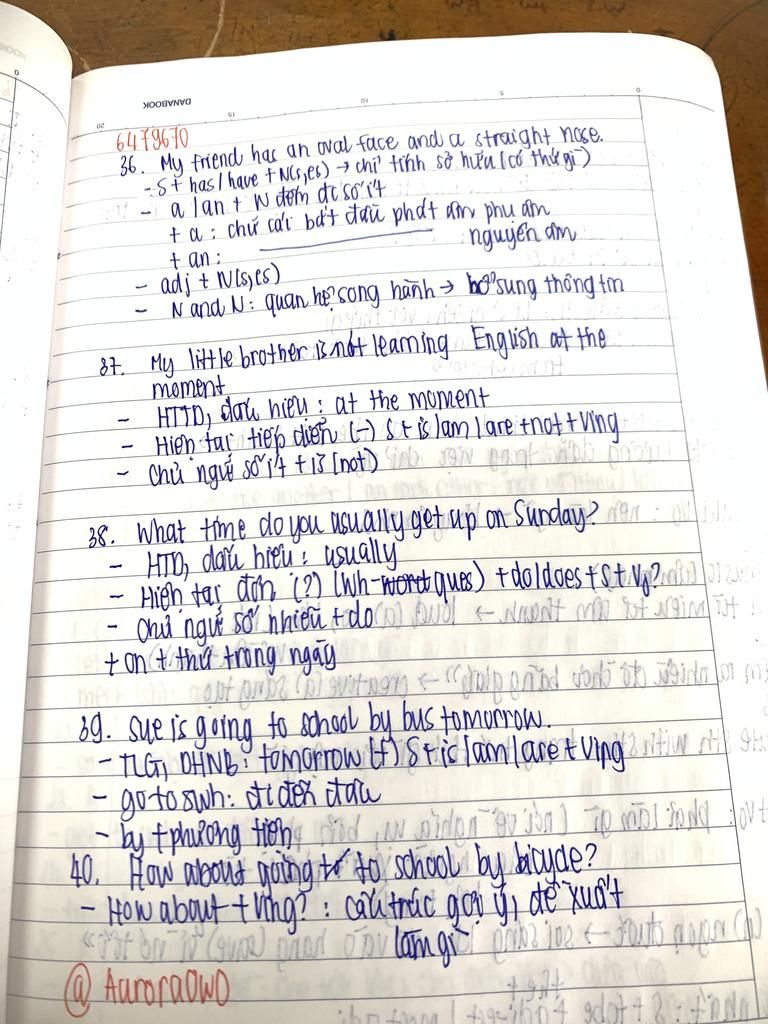 DANABOOK
20 15 10 5 0
6479670
36. My friend has an oval face and a straight nose.
- S + has/have + N(s,es) → chỉ tính sở hữu (có thứ gì)
- a/an + N đếm đc số ít
+ a : chữ cái bắt đầu phát âm phụ âm
+ an : ________ nguyên âm
- adj + N(s,es)
- N and N : quan hệ song hành → bổ sung thông tin
37. My little brother is not learning English at the
moment
- HTTD, dấu hiệu : at the moment
- Hiện tại tiếp diễn (-) S + is/am/are + not + Ving
- Chủ ngữ số ít + is (not)
38. What time do you usually get up on Sunday?
- HTD, dấu hiệu : usually
- Hiện tại đơn (?) (Wh- ques) + do/does + S + V₀?
- Chủ ngữ số nhiều + do
+ on + thứ trong ngày
39. Sue is going to school by bus tomorrow.
- TLG, DHNB : tomorrow (+) S + is/am/are + Ving
- go to swh : đi đến đâu
- by + phương tiện
40. How about going to school by bicycle?
- How about + Ving? : cấu trúc gợi ý, đề xuất
làm gì
@ AuroraOwO